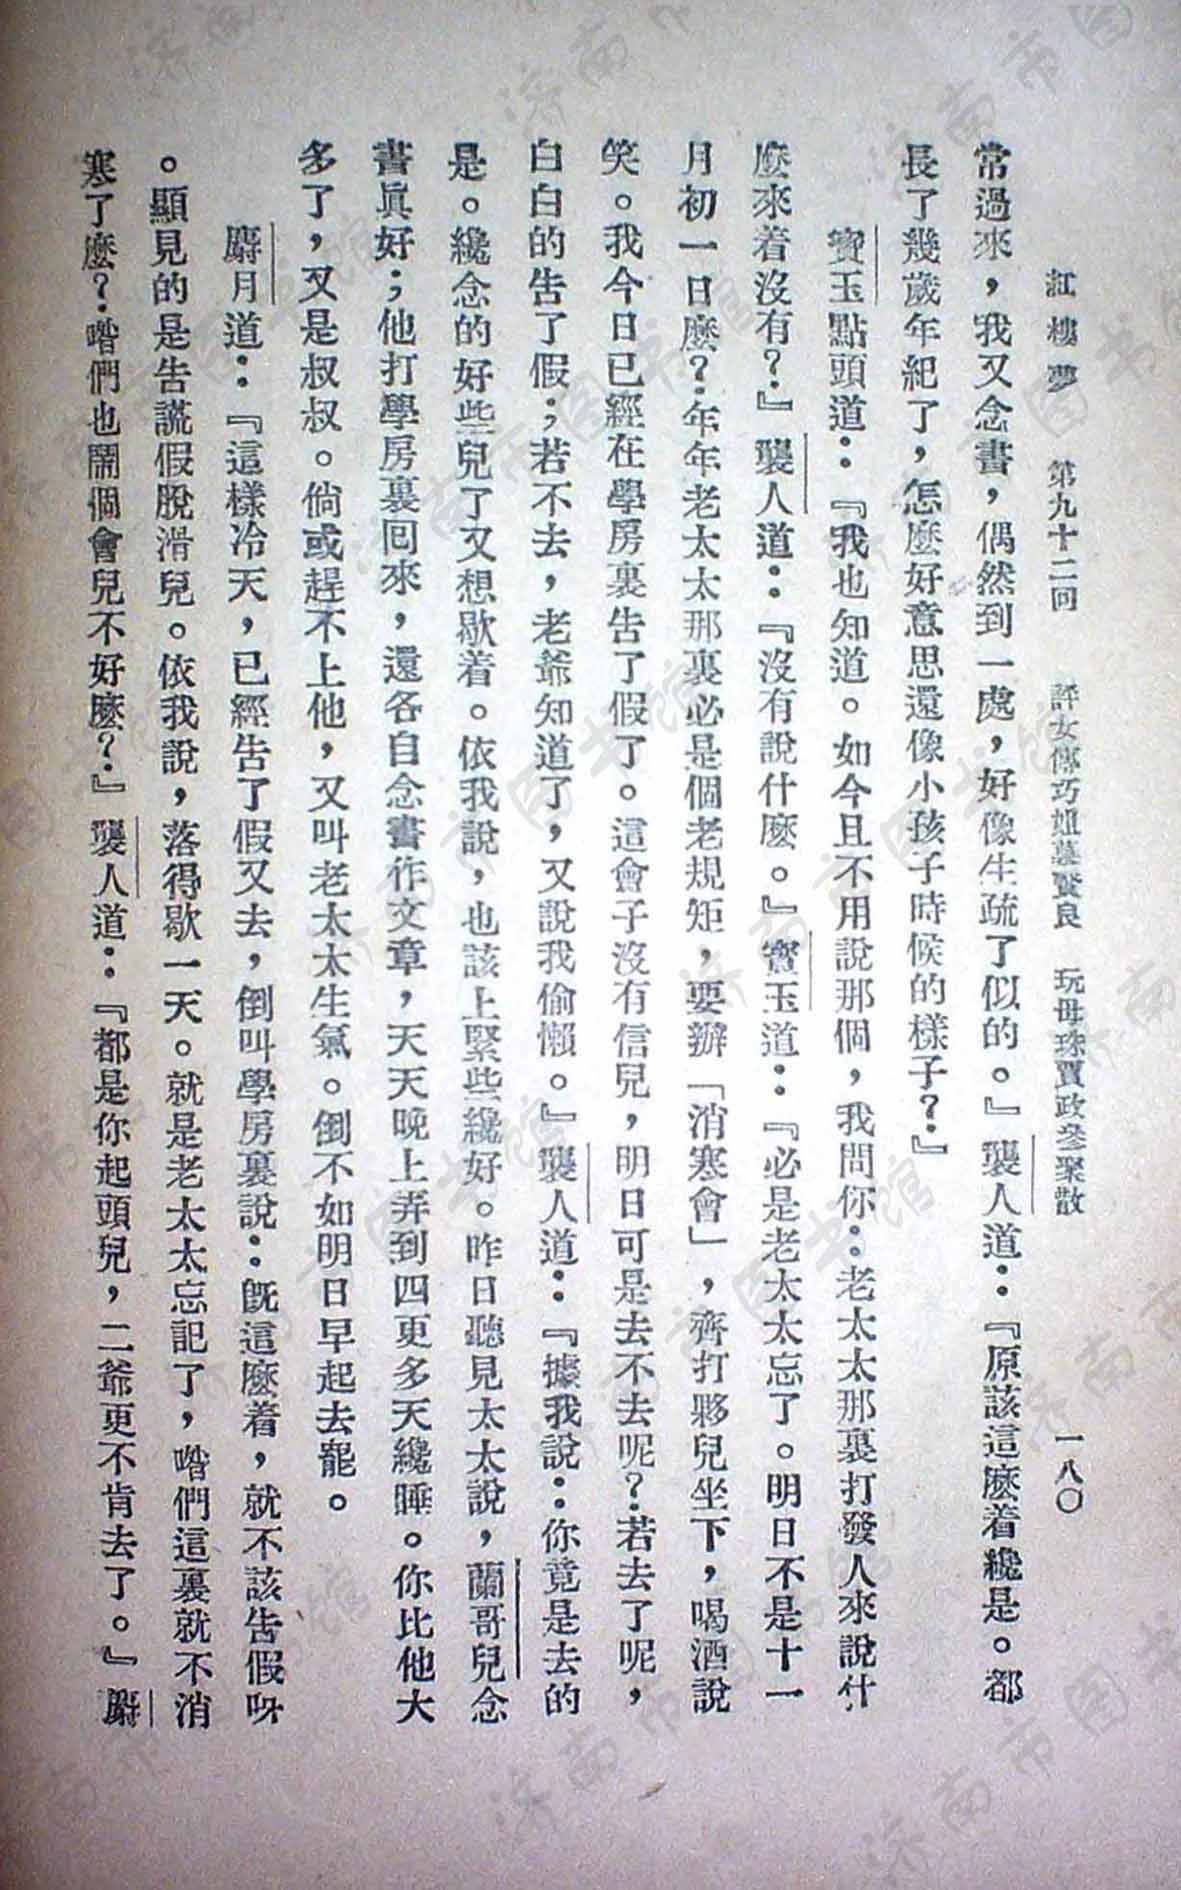 紅樓夢 第九十二回 評女傳巧姐慕賢良 玩母珠賈政參聚散 一八〇
常過來，我又念書，偶然到一處，好像生疏了似的。』襲人道：『原該這麽着纔是。都
長了幾歲年紀了，怎麽好意思還像小孩子時候的樣子？』
寶玉點頭道：『我也知道。如今且不用說那個，我問你：老太太那裏打發人來說什
麽來着沒有？』襲人道：『沒有說什麽。』寶玉道：『必是老太太忘了。明日不是十一
月初一日麽？年年老太太那裏必是個老規矩，要辦「消寒會」，齊打夥兒坐下，喝酒說
笑。我今日已經在學房裏告了假了。這會子沒有信兒，明日可是去不去呢？若去了呢，
白白的告了假；若不去，老爺知道了，又說我偷懶。』襲人道：『據我說：你竟是去的
是。纔念的好些兒了又想歇着。依我說，也該上緊些纔好。昨日聽見太太說，蘭哥兒念
書眞好；他打學房裏回來，還各自念書作文章，天天晚上弄到四更多天纔睡。你比他大
多了，又是叔叔。倘或趕不上他，又叫老太太生氣。倒不如明日早起去罷。
麝月道：『這樣冷天，已經告了假又去，倒叫學房裏說：旣這麽着，就不該告假呀
。顯見的是告謊假脫滑兒。依我說，落得歇一天。就是老太太忘記了，喒們這裏就不消
寒了麽？喒們也鬧個會兒不好麽？』襲人道：『都是你起頭兒，二爺更不肯去了。』麝
濟南市图书馆